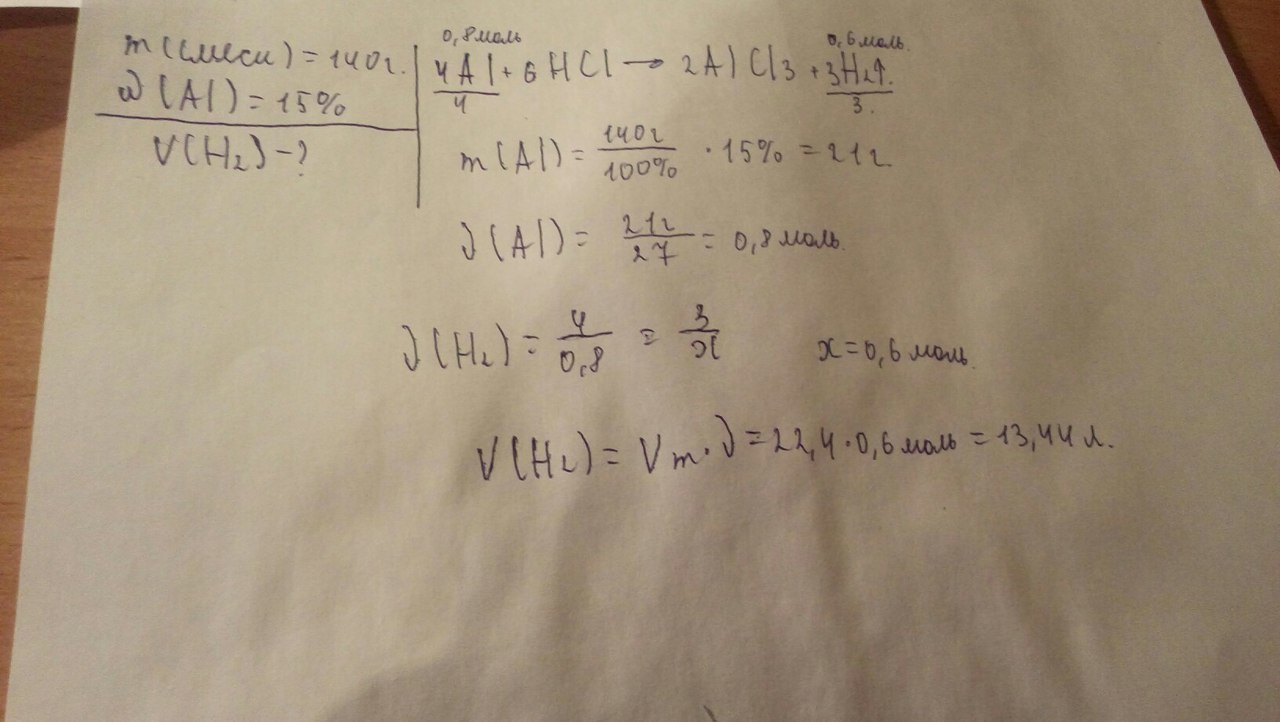 m(смеси) = 140г.
ω(Al) = 15%
V(H₂) - ?
0,8моль 0,6моль.
4Al + 6HCl → 2AlCl₃ + 3H₂↑.
4 3.
m(Al) = 140г/100% · 15% = 21г.
ν(Al) = 21г/27 = 0,8моль.
ν(H₂) = 4/0,8 = 3/x x = 0,6моль.
V(H₂) = Vm · ν = 22,4 · 0,6моль = 13,44л.